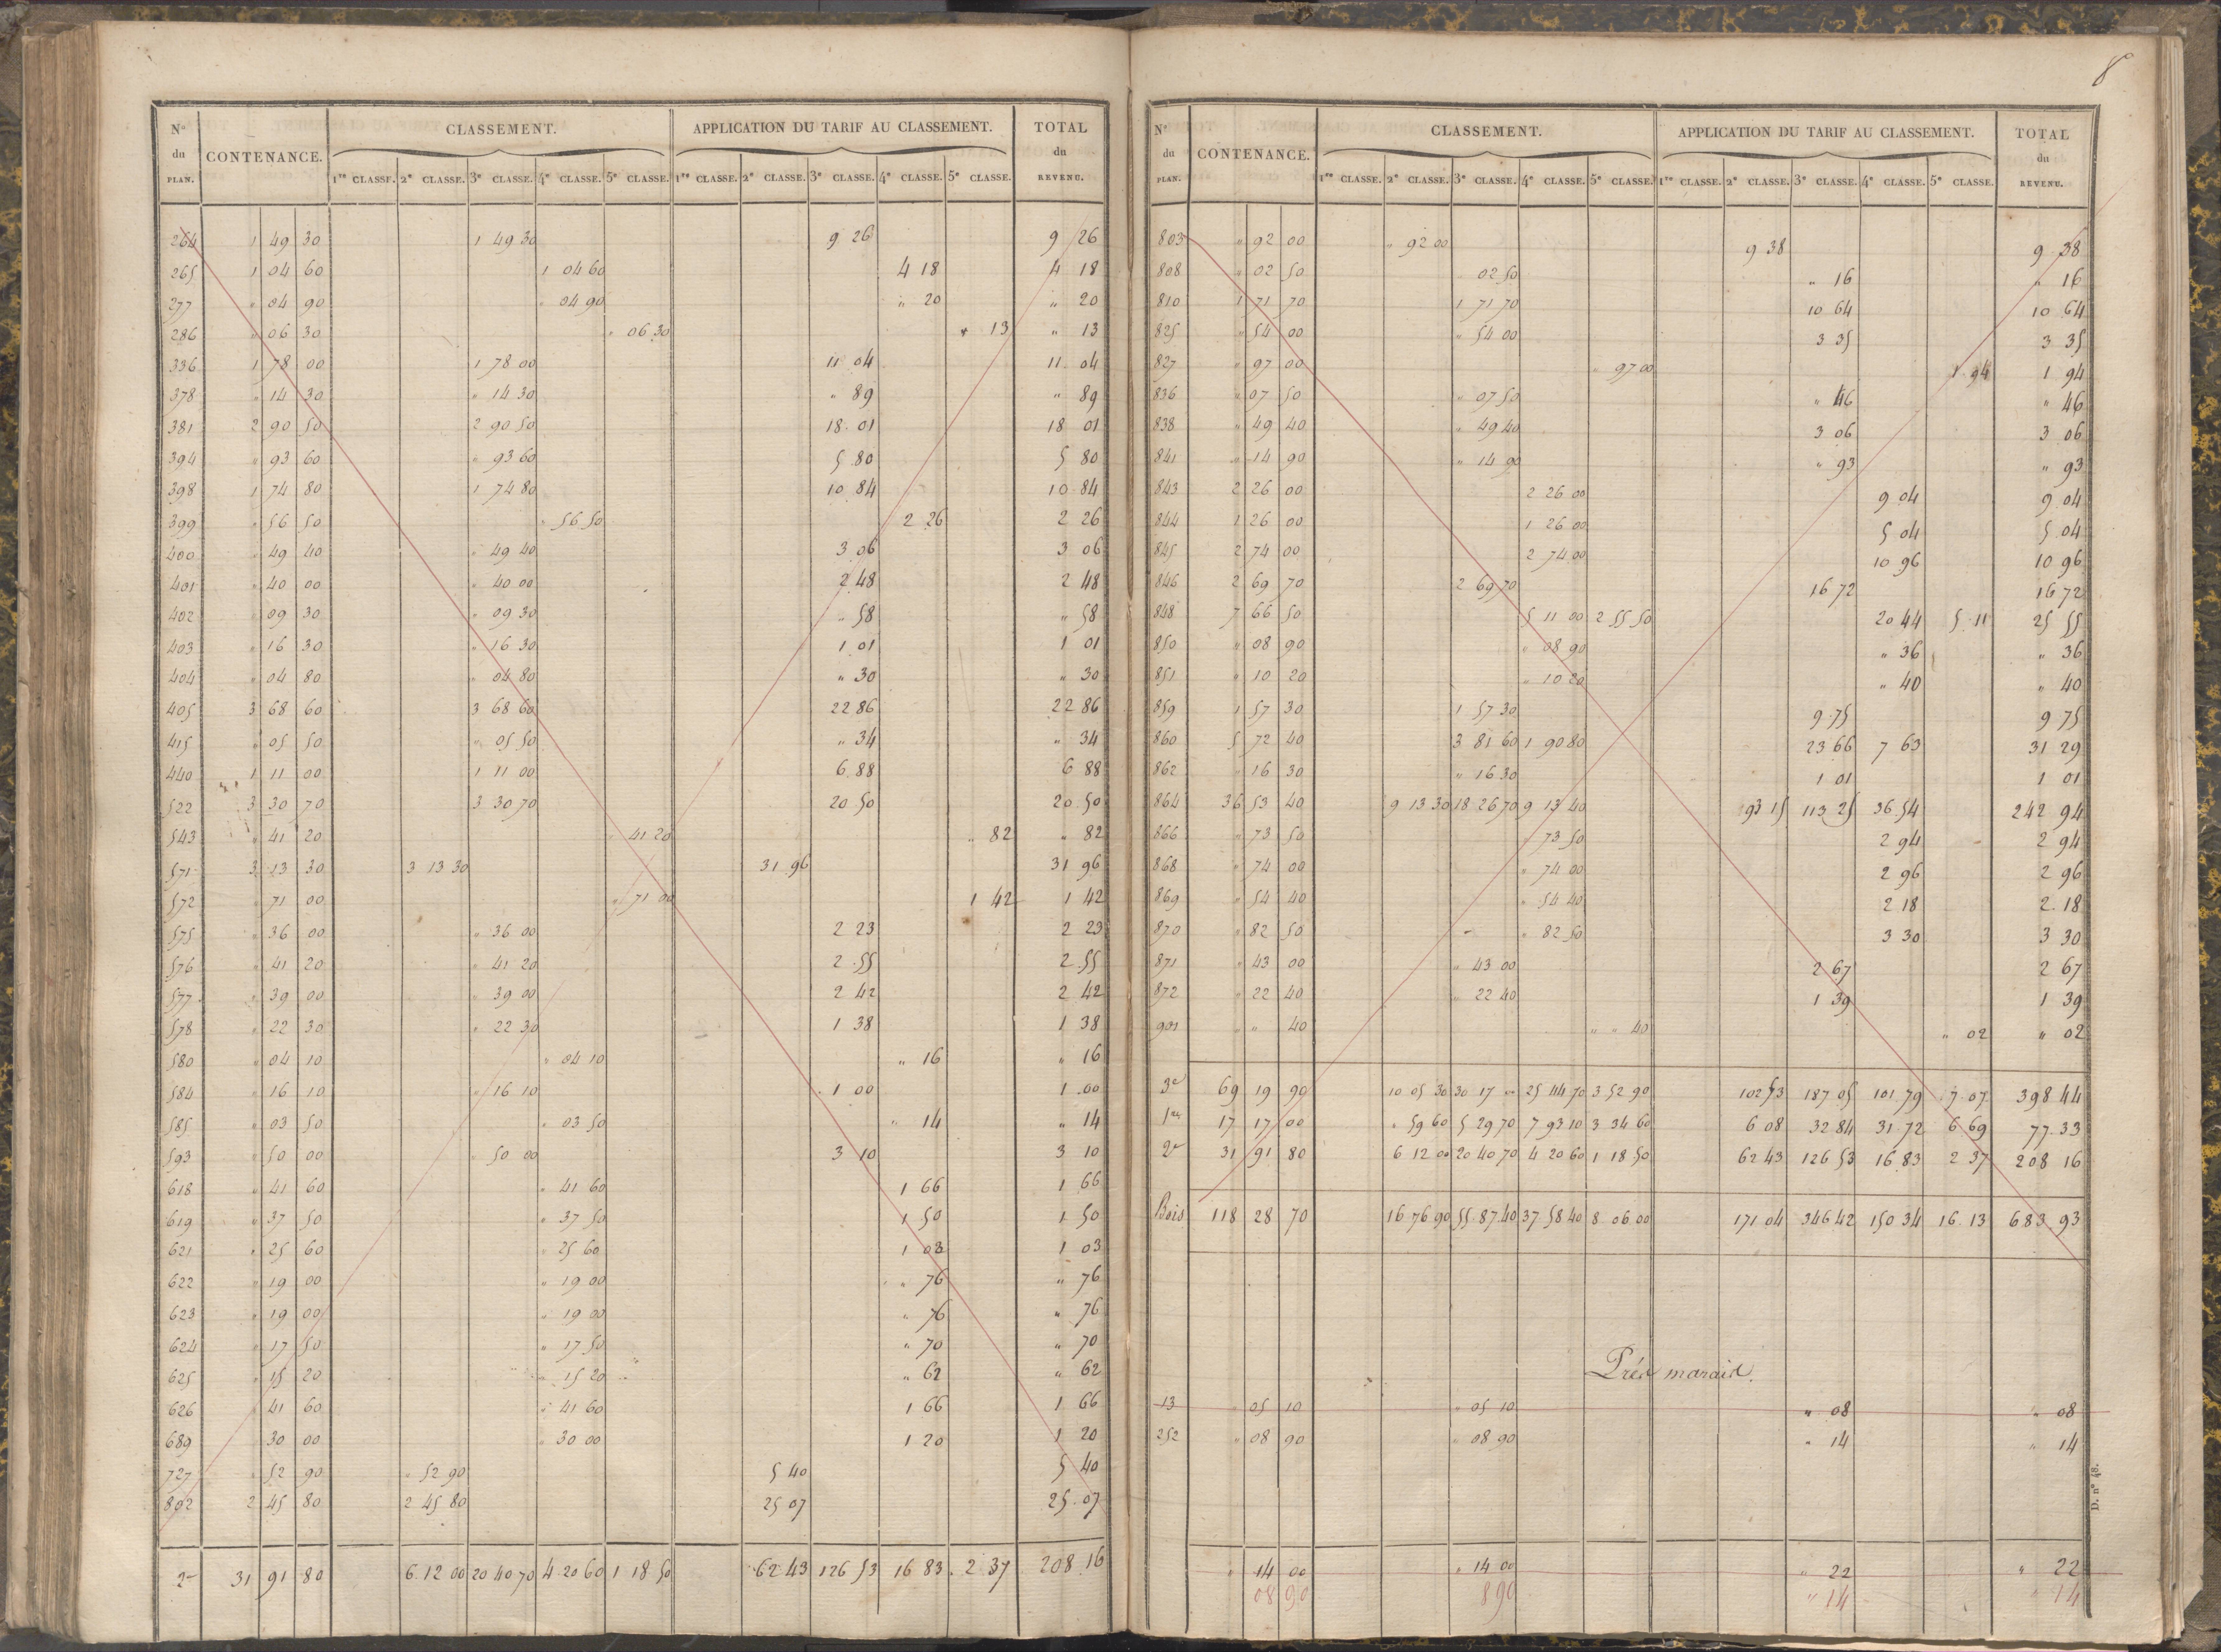 N° du PLAN. CONTENANCE. CLASSEMENT. APPLICATION DU TARIF AU CLASSEMENT. TOTAL du REVENU.
1re CLASSE. 2e CLASSE. 3e CLASSE. 4e CLASSE. 5e CLASSE. 1re CLASSE. 2e CLASSE. 3e CLASSE. 4e CLASSE. 5e CLASSE.
264 1 49 30 1 49 30 9 26 9 26
265 1 04 60 1 04 60 4 18 4 18
277 " 04 90 " 04 90 " 20 " 20
286 " 06 30 " 06 30 " 13 " 13
336 1 78 00 1 78 00 11 04 11 04
378 " 14 30 " 14 30 " 89 " 89
381 2 90 50 2 90 50 18 01 18 01
394 " 93 60 " 93 60 5 80 5 80
398 1 74 80 1 74 80 10 84 10 84
399 " 56 50 " 56 50 2 26 2 26
400 " 49 40 " 49 40 3 06 3 06
401 " 40 00 " 40 00 2 48 2 48
402 " 09 30 " 09 30 " 58 " 58
403 " 16 30 " 16 30 1 01 1 01
404 " 04 80 " 04 80 " 30 " 30
405 3 68 60 3 68 60 22 86 22 86
415 " 05 50 " 05 50 " 34 " 34
440 1 11 00 1 11 00 6 88 6 88
522 3 30 70 3 30 70 20 50 20 50
543 " 41 20 " 41 20 " 82 " 82
571 3 13 30 3 13 30 31 96 31 96
572 " 71 00 " 71 00 1 42 1 42
575 " 36 00 " 36 00 2 23 2 23
576 " 41 20 " 41 20 2 55 2 55
577 " 39 00 " 39 00 2 42 2 42
578 " 22 30 " 22 30 1 38 1 38
580 " 04 10 " 04 10 " 16 " 16
584 " 16 10 " 16 10 1 00 1 00
585 " 03 50 " 03 50 " 14 " 14
593 " 50 00 " 50 00 3 10 3 10
618 " 41 60 " 41 60 1 66 1 66
619 " 37 50 " 37 50 1 50 1 50
621 " 25 60 " 25 60 1 03 1 03
622 " 19 00 " 19 00 " 76 " 76
623 " 19 00 " 19 00 " 76 " 76
624 " 17 50 " 17 50 " 70 " 70
625 " 15 20 " 15 20 " 62 " 62
626 41 60 " 41 60 1 66 1 66
689 30 00 " 30 00 1 20 1 20
727 " 52 90 " 52 90 5 40 5 40
802 2 45 80 2 45 80 25 07 25 07
2e 31 91 80 6 12 00 20 40 70 4 20 60 1 18 50 62 43 126 53 16 83 2 37 208 16
8
N° du PLAN. CONTENANCE. CLASSEMENT. APPLICATION DU TARIF AU CLASSEMENT. TOTAL du REVENU.
1re CLASSE. 2e CLASSE. 3e CLASSE. 4e CLASSE. 5e CLASSE. 1re CLASSE. 2e CLASSE. 3e CLASSE. 4e CLASSE. 5e CLASSE.
803 " 92 00 " 92 00 9 38 9 38
808 " 02 50 02 50 " 16 " 16
810 1 71 70 1 71 70 10 64 10 64
825 " 54 00 " 54 00 3 35 3 35
827 " 97 00 " 97 00 1 94 1 94
836 " 07 50 " 07 50 " 46 " 46
838 " 49 40 " 49 40 3 06 3 06
841 " 14 90 " 14 90 " 93 " 93
843 2 26 00 2 26 00 9 04 9 04
844 1 26 00 1 26 00 5 04 5 04
845 2 74 00 2 74 00 10 96 10 96
846 2 69 70 2 69 70 16 72 16 72
848 7 66 50 5 11 00 2 55 50 20 44 5 11 25 55
850 " 08 90 " 08 90 " 36 " 36
851 " 10 20 " 10 20 " 40 " 40
859 1 57 30 1 57 30 9 75 9 75
860 5 72 40 3 81 60 1 90 80 23 66 7 63 31 29
862 " 16 30 " 16 30 1 01 1 01
864 36 53 40 9 13 30 18 26 70 9 13 40 93 15 113 25 36 54 242 94
866 " 73 50 " 73 50 2 94 2 94
868 " 74 00 " 74 00 2 96 2 96
869 " 54 40 " 54 40 2 18 2 18
870 " 82 50 " 82 50 3 30 3 30
871 " 43 00 " 43 00 2 67 2 67
872 " 22 40 " 22 40 1 39 1 39
901 " " 40 " " 40 " 02 " 02
3e 69 19 90 10 05 30 30 17 " 25 44 70 3 52 90 102 53 187 05 101 79 7 07 398 44
1re 17 17 00 " 59 60 5 29 70 7 93 10 3 34 60 6 08 32 84 31 72 6 69 77 33
2e 31 91 80 6 12 00 20 40 70 4 20 60 1 18 50 62 43 126 53 16 83 2 37 208 16
Bois 118 28 70 16 76 90 55 87 40 37 58 40 8 06 00 171 04 346 42 150 34 16 13 683 93
Prés marais.
13 " 05 10 " 05 10 " 08 " 08
252 " 08 90 " 08 90 " 14 " 14
" 14 00 " 14 00 " 22 " 22
08 90 8 90 " 14 " 14
D. n° 48.